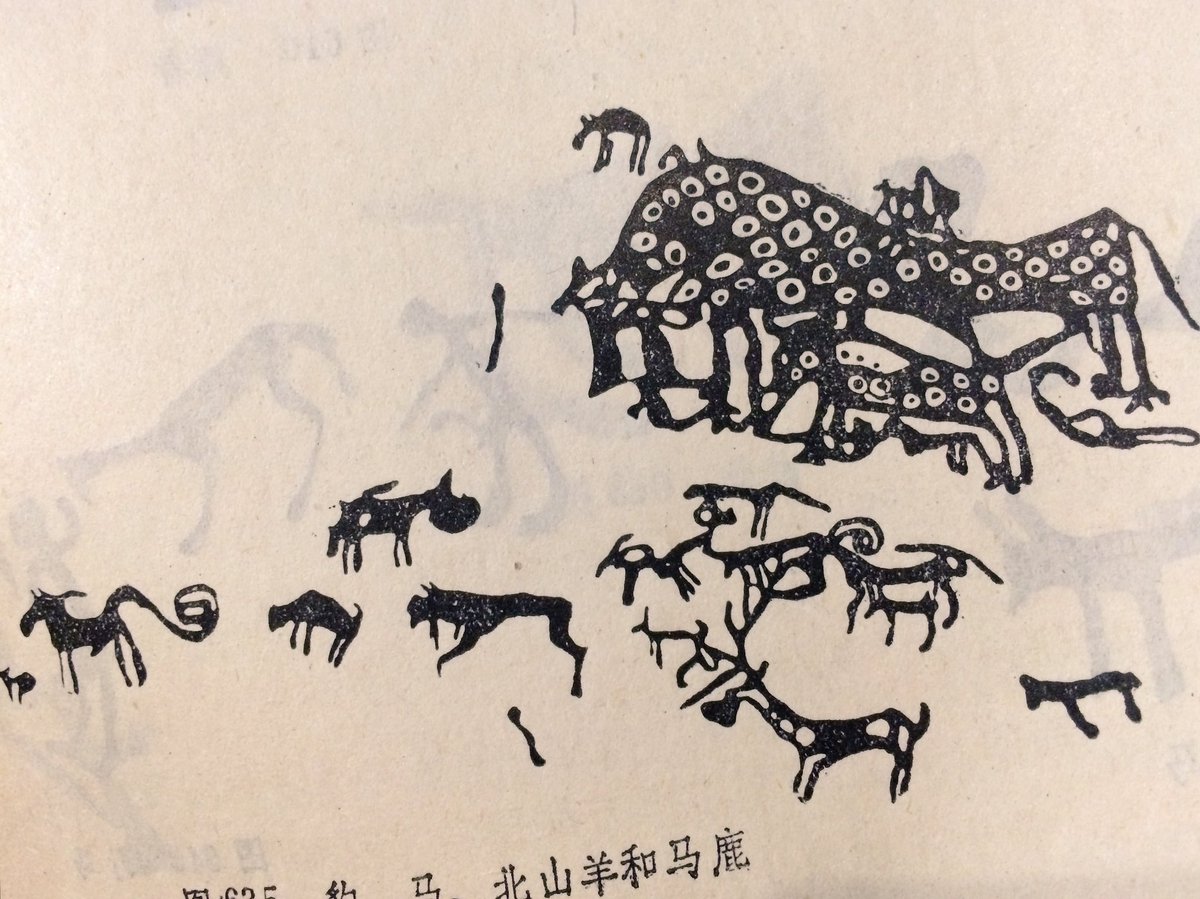 图635 豹、马、北山羊和马鹿